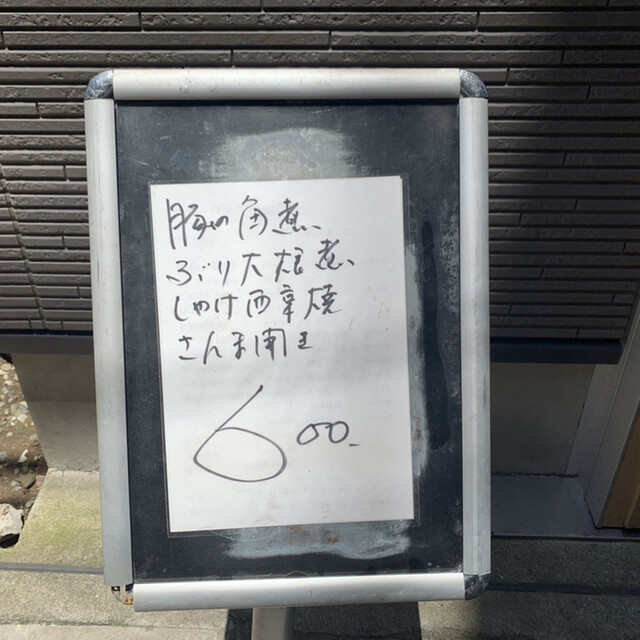 豚の角煮、
ぶり大根煮、
しゃけ西京焼
さんま開き
600-